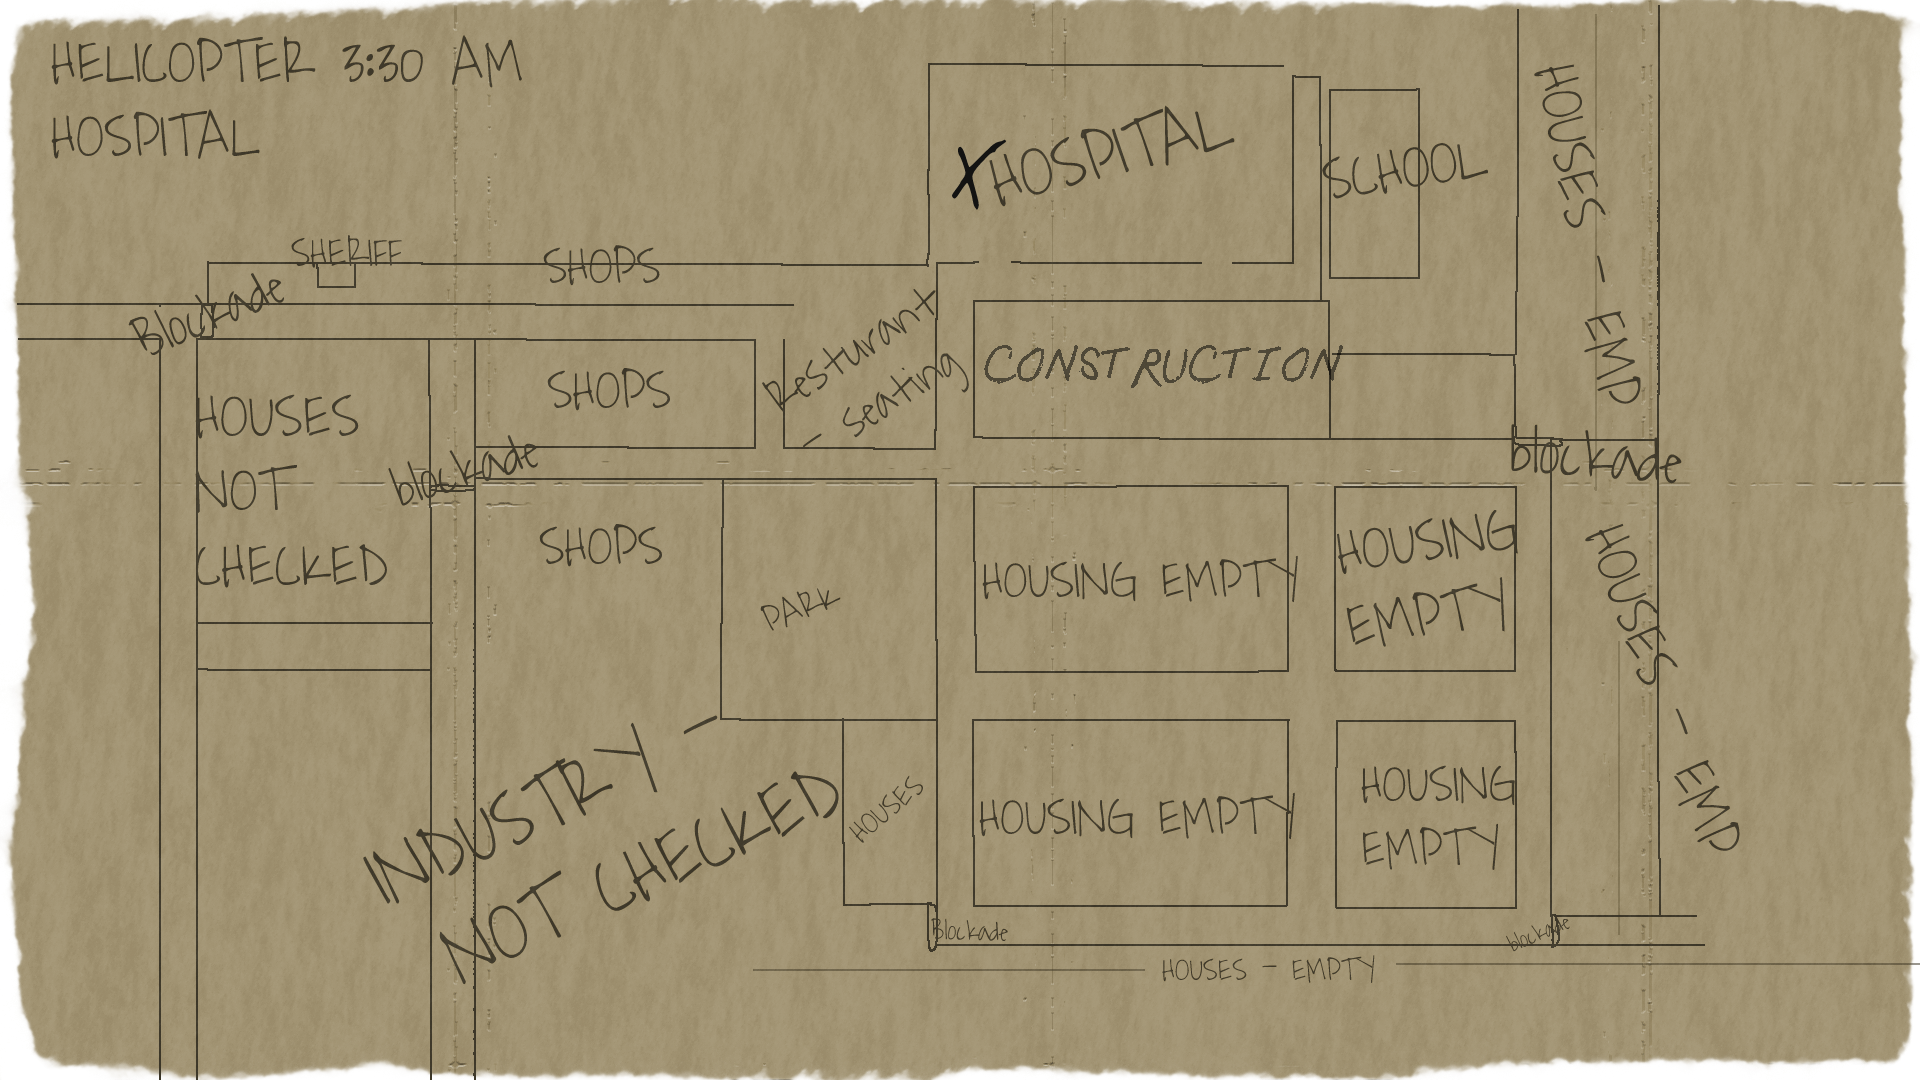 HELICOPTER 3:30 AM
HOSPITAL
X HOSPITAL
SCHOOL
HOUSES - EMP
SHERIFF
SHOPS
Blockade
Resturant
- seating
CONSTRUCTION
SHOPS
HOUSES
NOT
CHECKED
blockade
blockade
SHOPS
PARK
HOUSING EMPTY
HOUSING
EMPTY
HOUSES - EMP
INDUSTRY -
NOT CHECKED
HOUSES
HOUSING EMPTY
HOUSING
EMPTY
Blockade
blockade
HOUSES - EMPTY